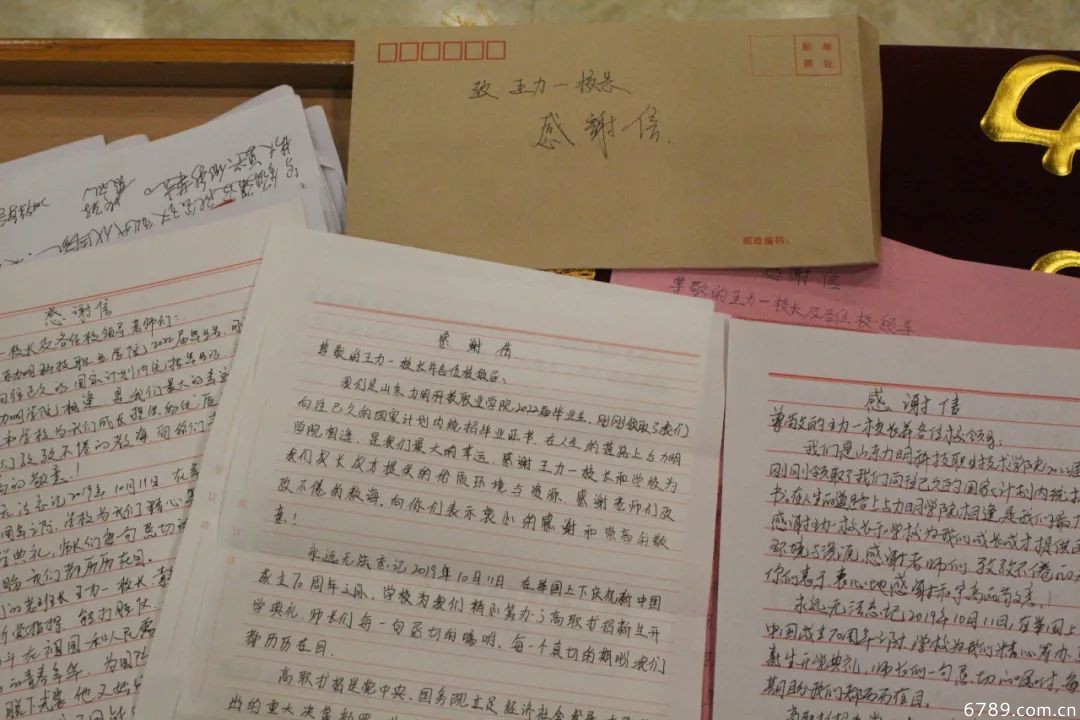 贴 邮
票 处
致 王力一校长
感謝信
邮政编码:
感谢信
尊敬的王力一校长及各位校领导
感谢信
一校长及各位校领导老师们:
力明科技职业学院2022届毕业生
向往已久的国家计划内统招毕业证
力明学院相逢,是我们最大的幸运
和学校为我们成长提供的优质
们孜孜不倦的教诲向你们
的敬意!
无法忘记2019年10月11日,在
周年之际,学校为我们精心筹
学典礼,师长们每一句恳切
盼我们都历历在目。
们的老班长王力一校长
听党指挥,能打胜仗
在祖国和人民需
的青春年华,为国
脱下戎装,他又
感谢信
尊敬的王力一校长并各位校领导:
我们是山东力明科技职业学院2022届毕业生,刚刚领取了我们
向往已久的国家计划内统招毕业证书,在人生的道路上与力明
学院相逢,是我们最大的幸运。感谢王力一校长和学校为
我们成长成才提供的优质环境与资源,感谢老师们孜
孜不倦的教诲,向你们表示衷心的感谢和崇高的敬
意!
永远无法忘记2019年10月11日,在举国上下庆祝新中国
成立70周年之际,学校为我们精心筹办了高职扩招新生开
学典礼,师长们每一句恳切的嘱咐,每一个真切的期盼我们
都历历在目。
高职扩招是党中央、国务院立足经济社会发展
出的重大决策部署
感谢信
尊敬的王力一校长并各位校领导:
我们是山东力明科技职业技术学院2022届
刚刚领取了我们向往已久的国家计划内统招
书,在人生的道路上与力明学院相逢是我们最大
感谢王力一校长于学校为我们成长成才提供
环境与资源,感谢老师们,孜孜不倦的
你们表示衷心地感谢和崇高的敬意!
永远无法忘记2019年10月11日,在举国上
中国成立70周年之际,学校为我们精心筹办
新生开学典礼,师长们一句恳切的嘱咐,每
期盼我们都历历在目。
高职扩招
6789.com.cn